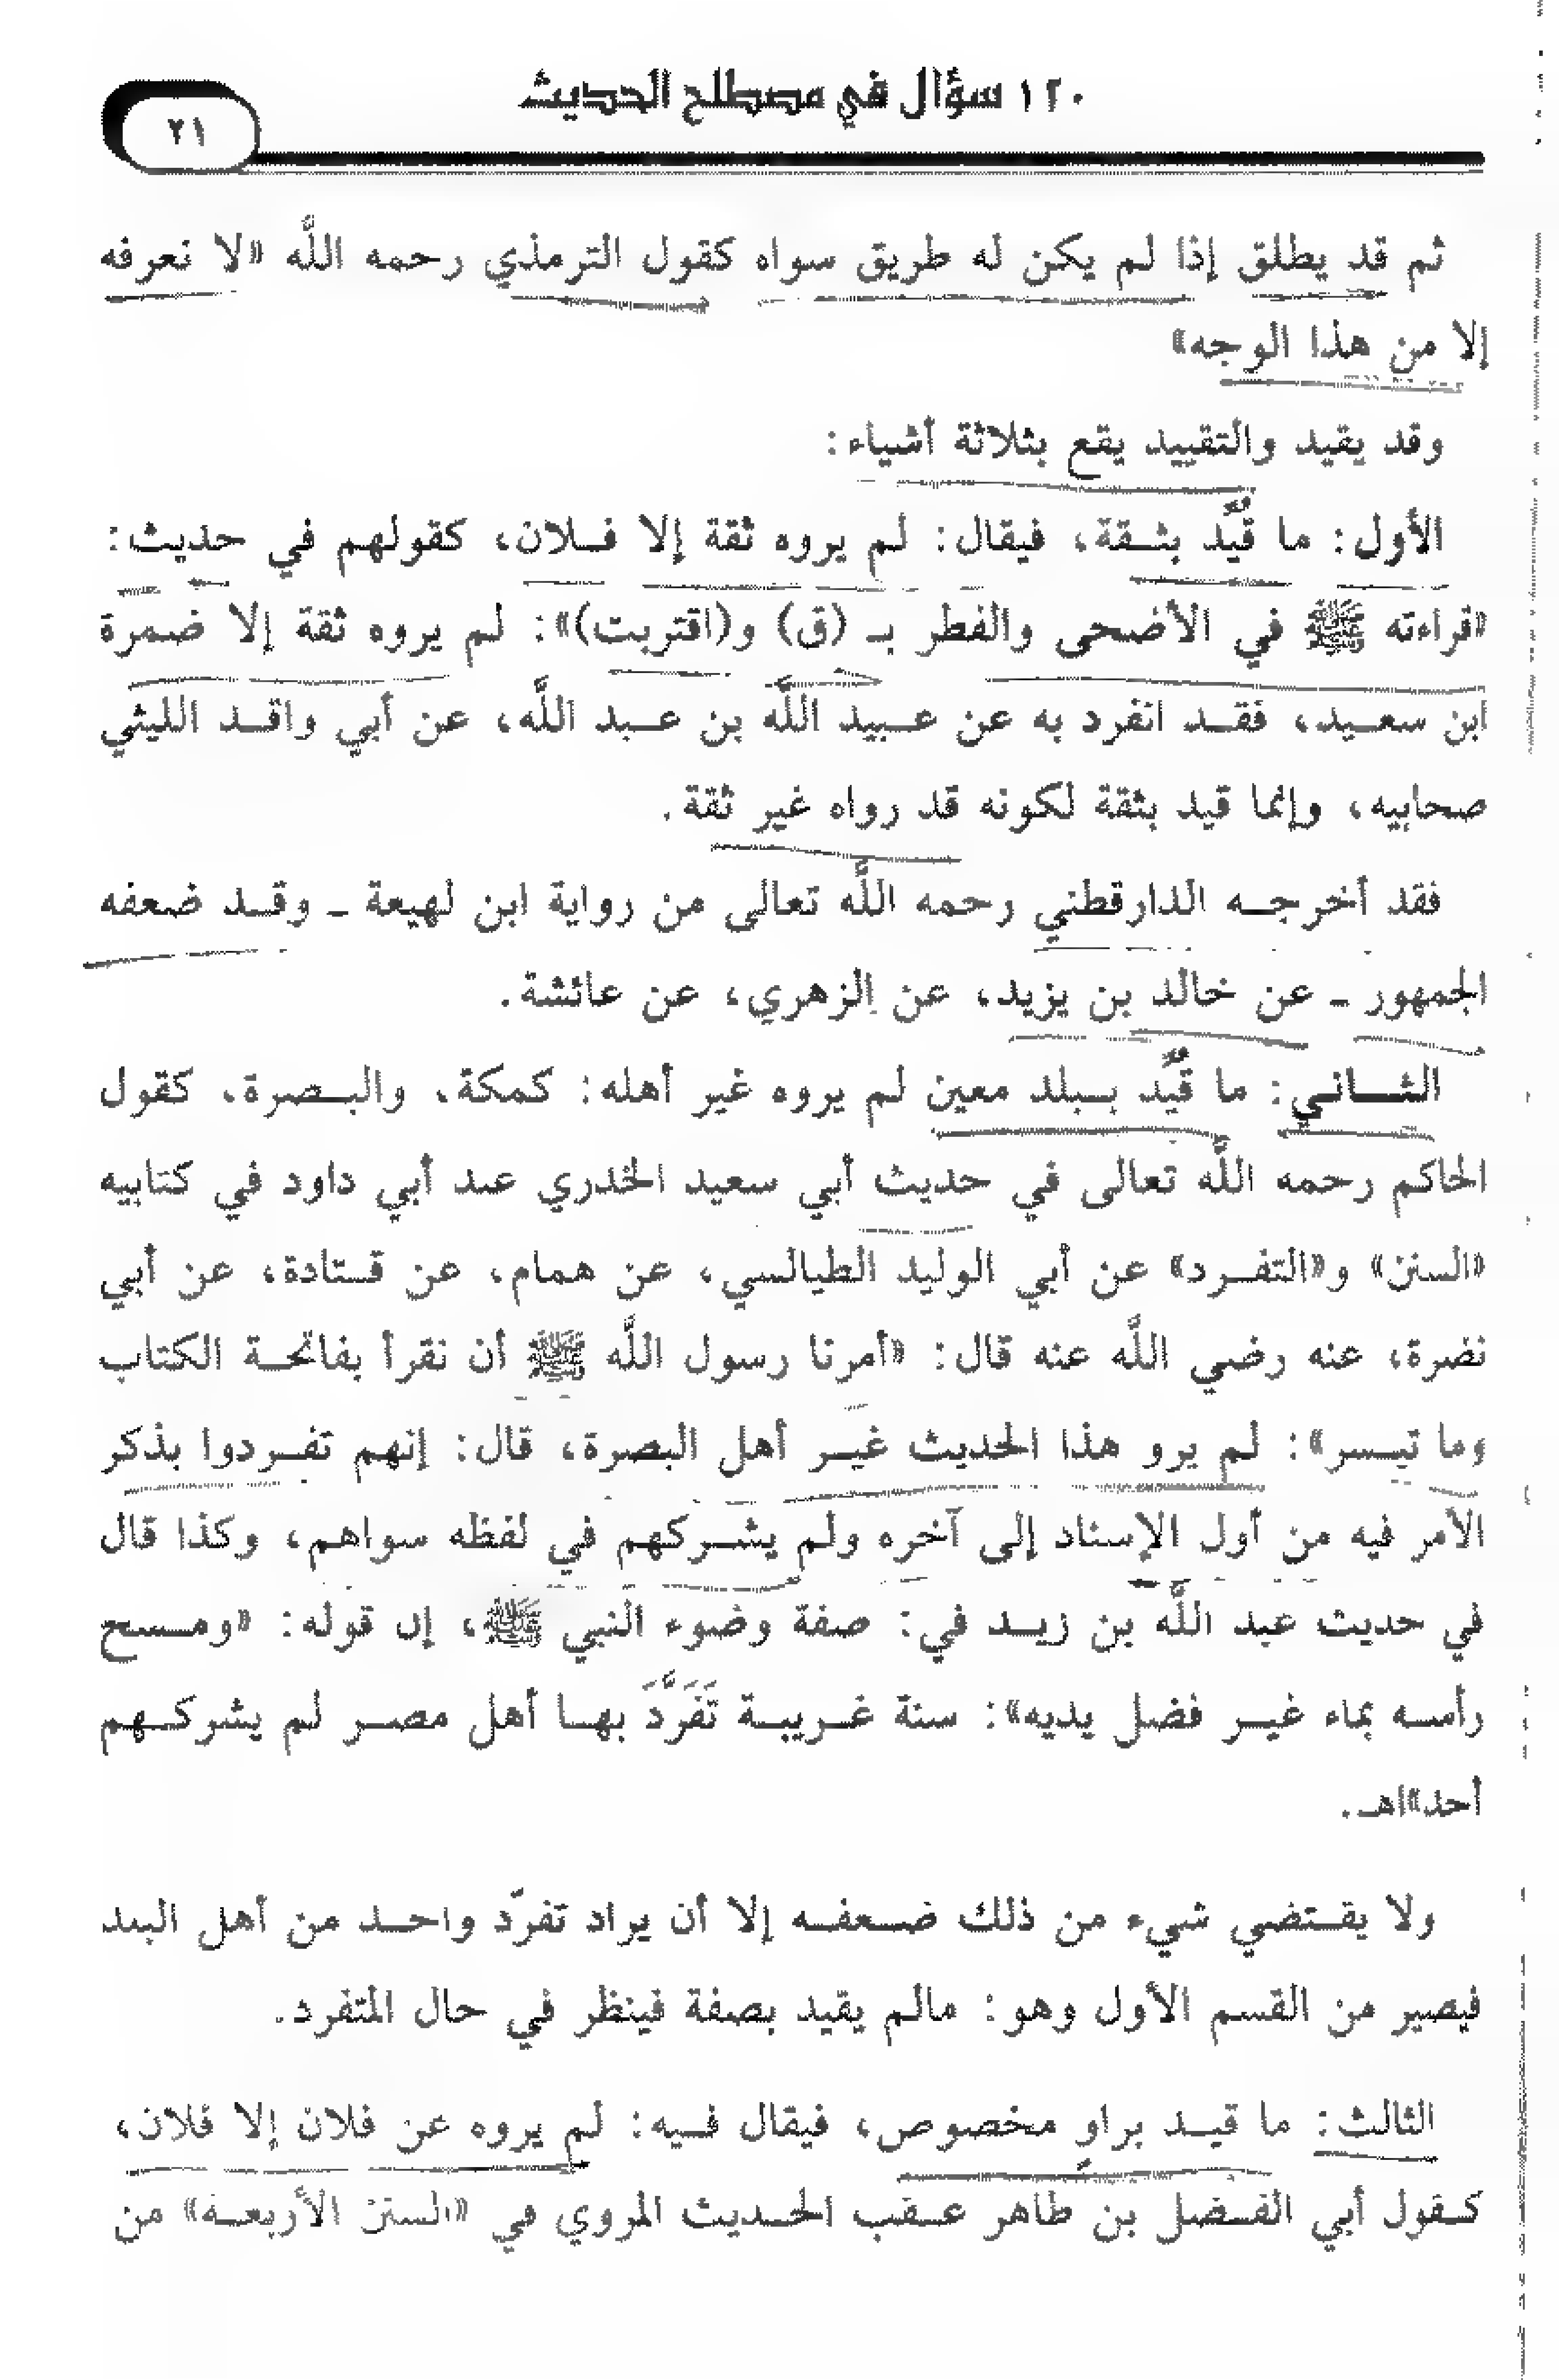 ١٢٠ سؤال في مصطلح الحديث
٢١
ثم قد يطلق إذا لم يكن له طريق سواه كقول الترمذي رحمه اللَّه «لا نعرفه
إلا من هذا الوجه»
وقد يقيد والتقييد يقع بثلاثة أشياء:
الأول: ما قيِّد بثقة، فيقال: لم يروه ثقة إلا فلان، كقولهم في حديث:
«قراءته ﷺ في الأضحى والفطر بـ (ق) و(اقتربت)»: لم يروه ثقة إلا ضمرة
ابن سعيد، فقد انفرد به عن عبيد اللَّه بن عبد اللَّه، عن أبي واقد الليثي
صحابيه، وإنما قيد بثقة لكونه قد رواه غير ثقة.
فقد أخرجه الدارقطني رحمه اللَّه تعالى من رواية ابن لهيعة ـ وقد ضعفه
الجمهور ـ عن خالد بن يزيد، عن الزهري، عن عائشة.
الثاني: ما قيِّد ببلد معين لم يروه غير أهله: كمكة، والبصرة، كقول
الحاكم رحمه اللَّه تعالى في حديث أبي سعيد الخدري عند أبي داود في كتابيه
«السنن» و«التفرد» عن أبي الوليد الطيالسي، عن همام، عن قتادة، عن أبي
نضرة، عنه رضي اللَّه عنه قال: «أمرنا رسول اللَّه ﷺ أن نقرأ بفاتحة الكتاب
وما تيسر»: لم يرو هذا الحديث غير أهل البصرة، قال: إنهم تفردوا بذكر
الأمر فيه من أول الإسناد إلى آخره ولم يشركهم في لفظه سواهم، وكذا قال
في حديث عبد اللَّه بن زيد في: صفة وضوء النبي ﷺ، إن قوله: «ومسح
رأسه بماء غير فضل يديه»: سنة غريبة تَفَرَّدَ بها أهل مصر لم يشركهم
أحد»اهـ.
ولا يقتضي شيء من ذلك ضعفه إلا أن يراد تفرّد واحد من أهل البلد
فيصير من القسم الأول وهو: مالم يقيد بصفة فينظر في حال المتفرد.
الثالث: ما قيد براوٍ مخصوص، فيقال فيه: لم يروه عن فلان إلا فلان،
كقول أبي الفضل بن طاهر عقب الحديث المروي في «السنن الأربعة» من